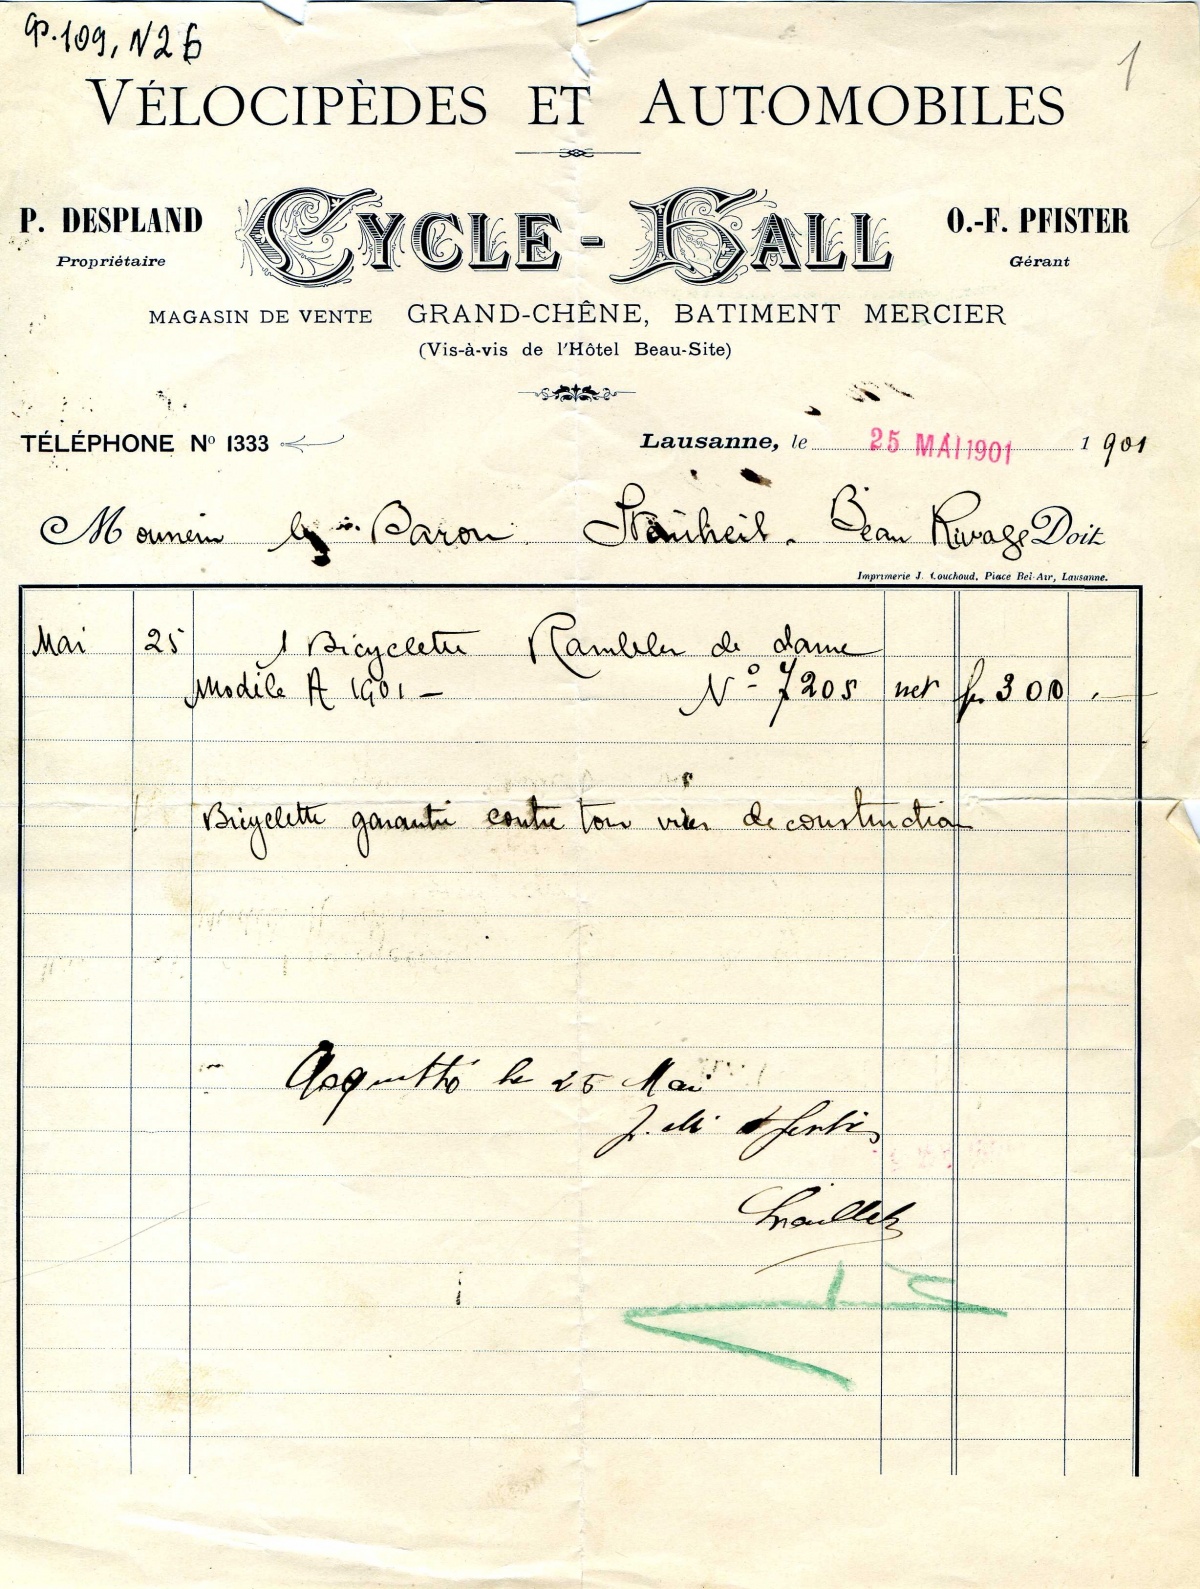 Ф.109, N26
1
VÉLOCIPÈDES ET AUTOMOBILES
P. DESPLAND
Propriétaire
CYCLE-HALL
O.-F. PFISTER
Gérant
MAGASIN DE VENTE GRAND-CHÊNE, BATIMENT MERCIER
(Vis-à-vis de l'Hôtel Beau-Site)
TÉLÉPHONE No 1333
Lausanne, le 25 MAI 1901 1901
Monsieur le Baron Beau Rivage Doit
Imprimerie J. Couchoud, Place Bel-Air, Lausanne.
Mai 25 1 Bicyclette Rambler de dame
Modèle A 1901 — No 7205 net fr 300 . —
Bicyclette garantie contre tous vices de construction
Acquitté le 25 Mai